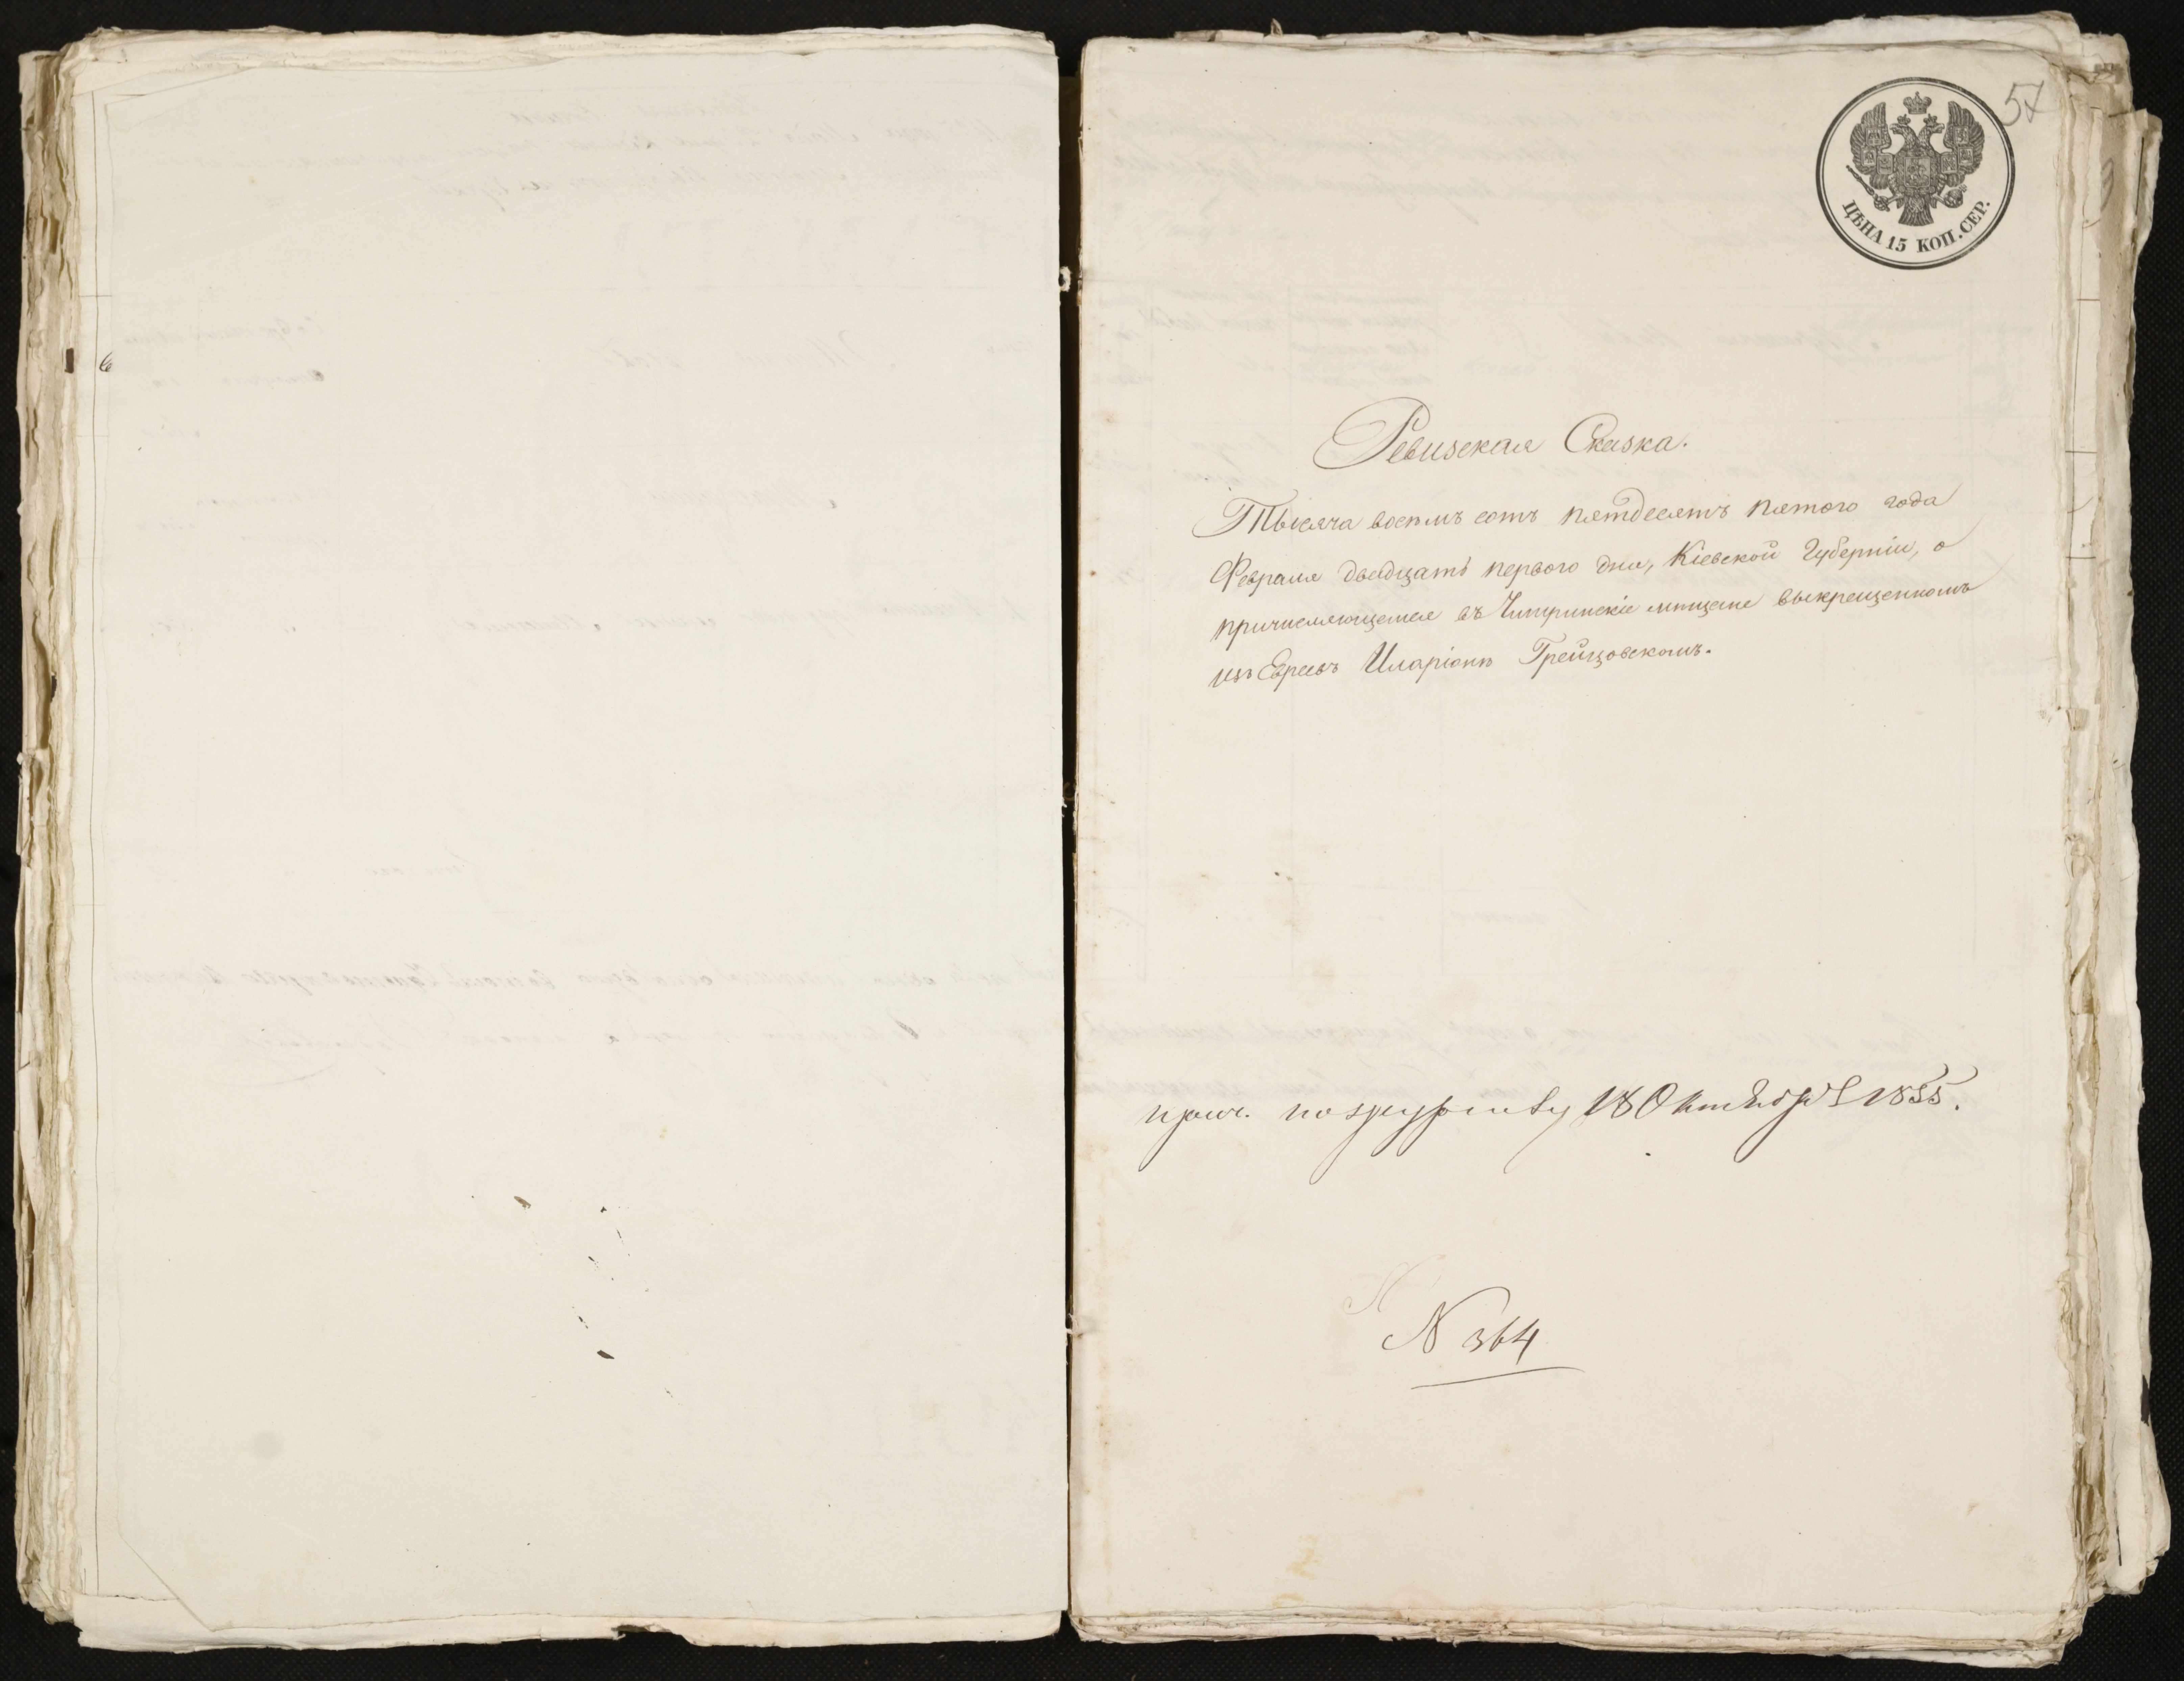 57
ЦѢНА 15 КОП. СЕР.
Ревизская Сказка.
Тысяча восемъ сотъ пятдесятъ пятого года
Февраля двадцать первого дня, Кіевской Губерніи, о
причисляющемся въ Чигиринскіе мѣщане выкрещенномъ
изъ Евреевъ Иларіонѣ Грейцовскомъ.
прич. по журналу 18 Октября 1855.
N 364